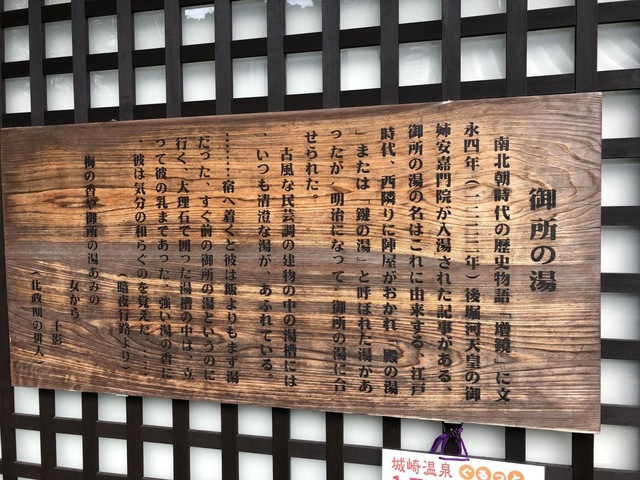 御所の湯
南北朝時代の歴史物語「増鏡」に文
永四年(一二三三年)後堀河天皇の御
姉安嘉門院が入湯された記事がある、
御所の湯の名はこれに由来する、江戸
時代、西隣りに陣屋がおかれ「殿の湯
」または「鍵の湯」と呼ばれた湯があ
ったが、明治になって、御所の湯に合
せられた。
古風な民芸調の建物の中の湯槽には
、いつも清澄な湯が、あふれている。
………宿へ着くと彼は飯よりもまず湯
だった、すぐ前の御所の湯というのに
行く、大理石で囲った湯槽の中は、立
って彼の乳まであった、強い湯の香に
彼は気分の和らぐのを覚えた……
(暗夜行路より)
梅の香や御所の湯あみの
女から
十影
(化政期の俳人)
城崎温泉
ぐるっと